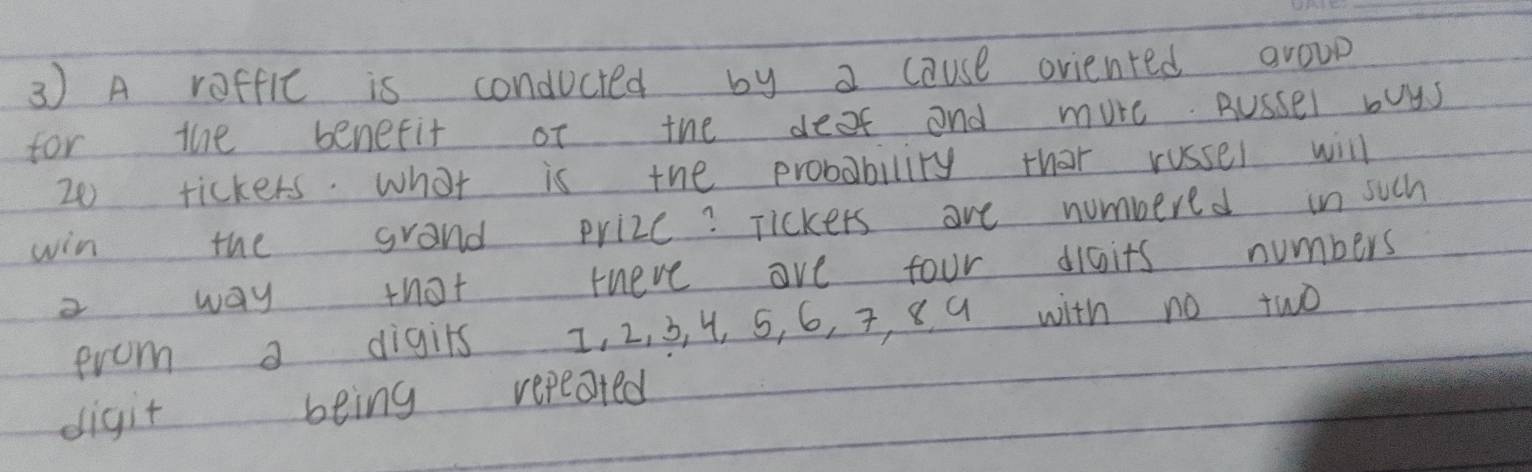 3) A raffle is conducted by a cause oriented group
for the benefit of the deaf and mute. Russel buys
20 tickets. What is the probability that russel will
win the grand prize? Tickets are numbered in such
a way that there are four digits numbers
from a digits 1, 2, 3, 4, 5, 6, 7, 8, 9 with no two
digit being repeated